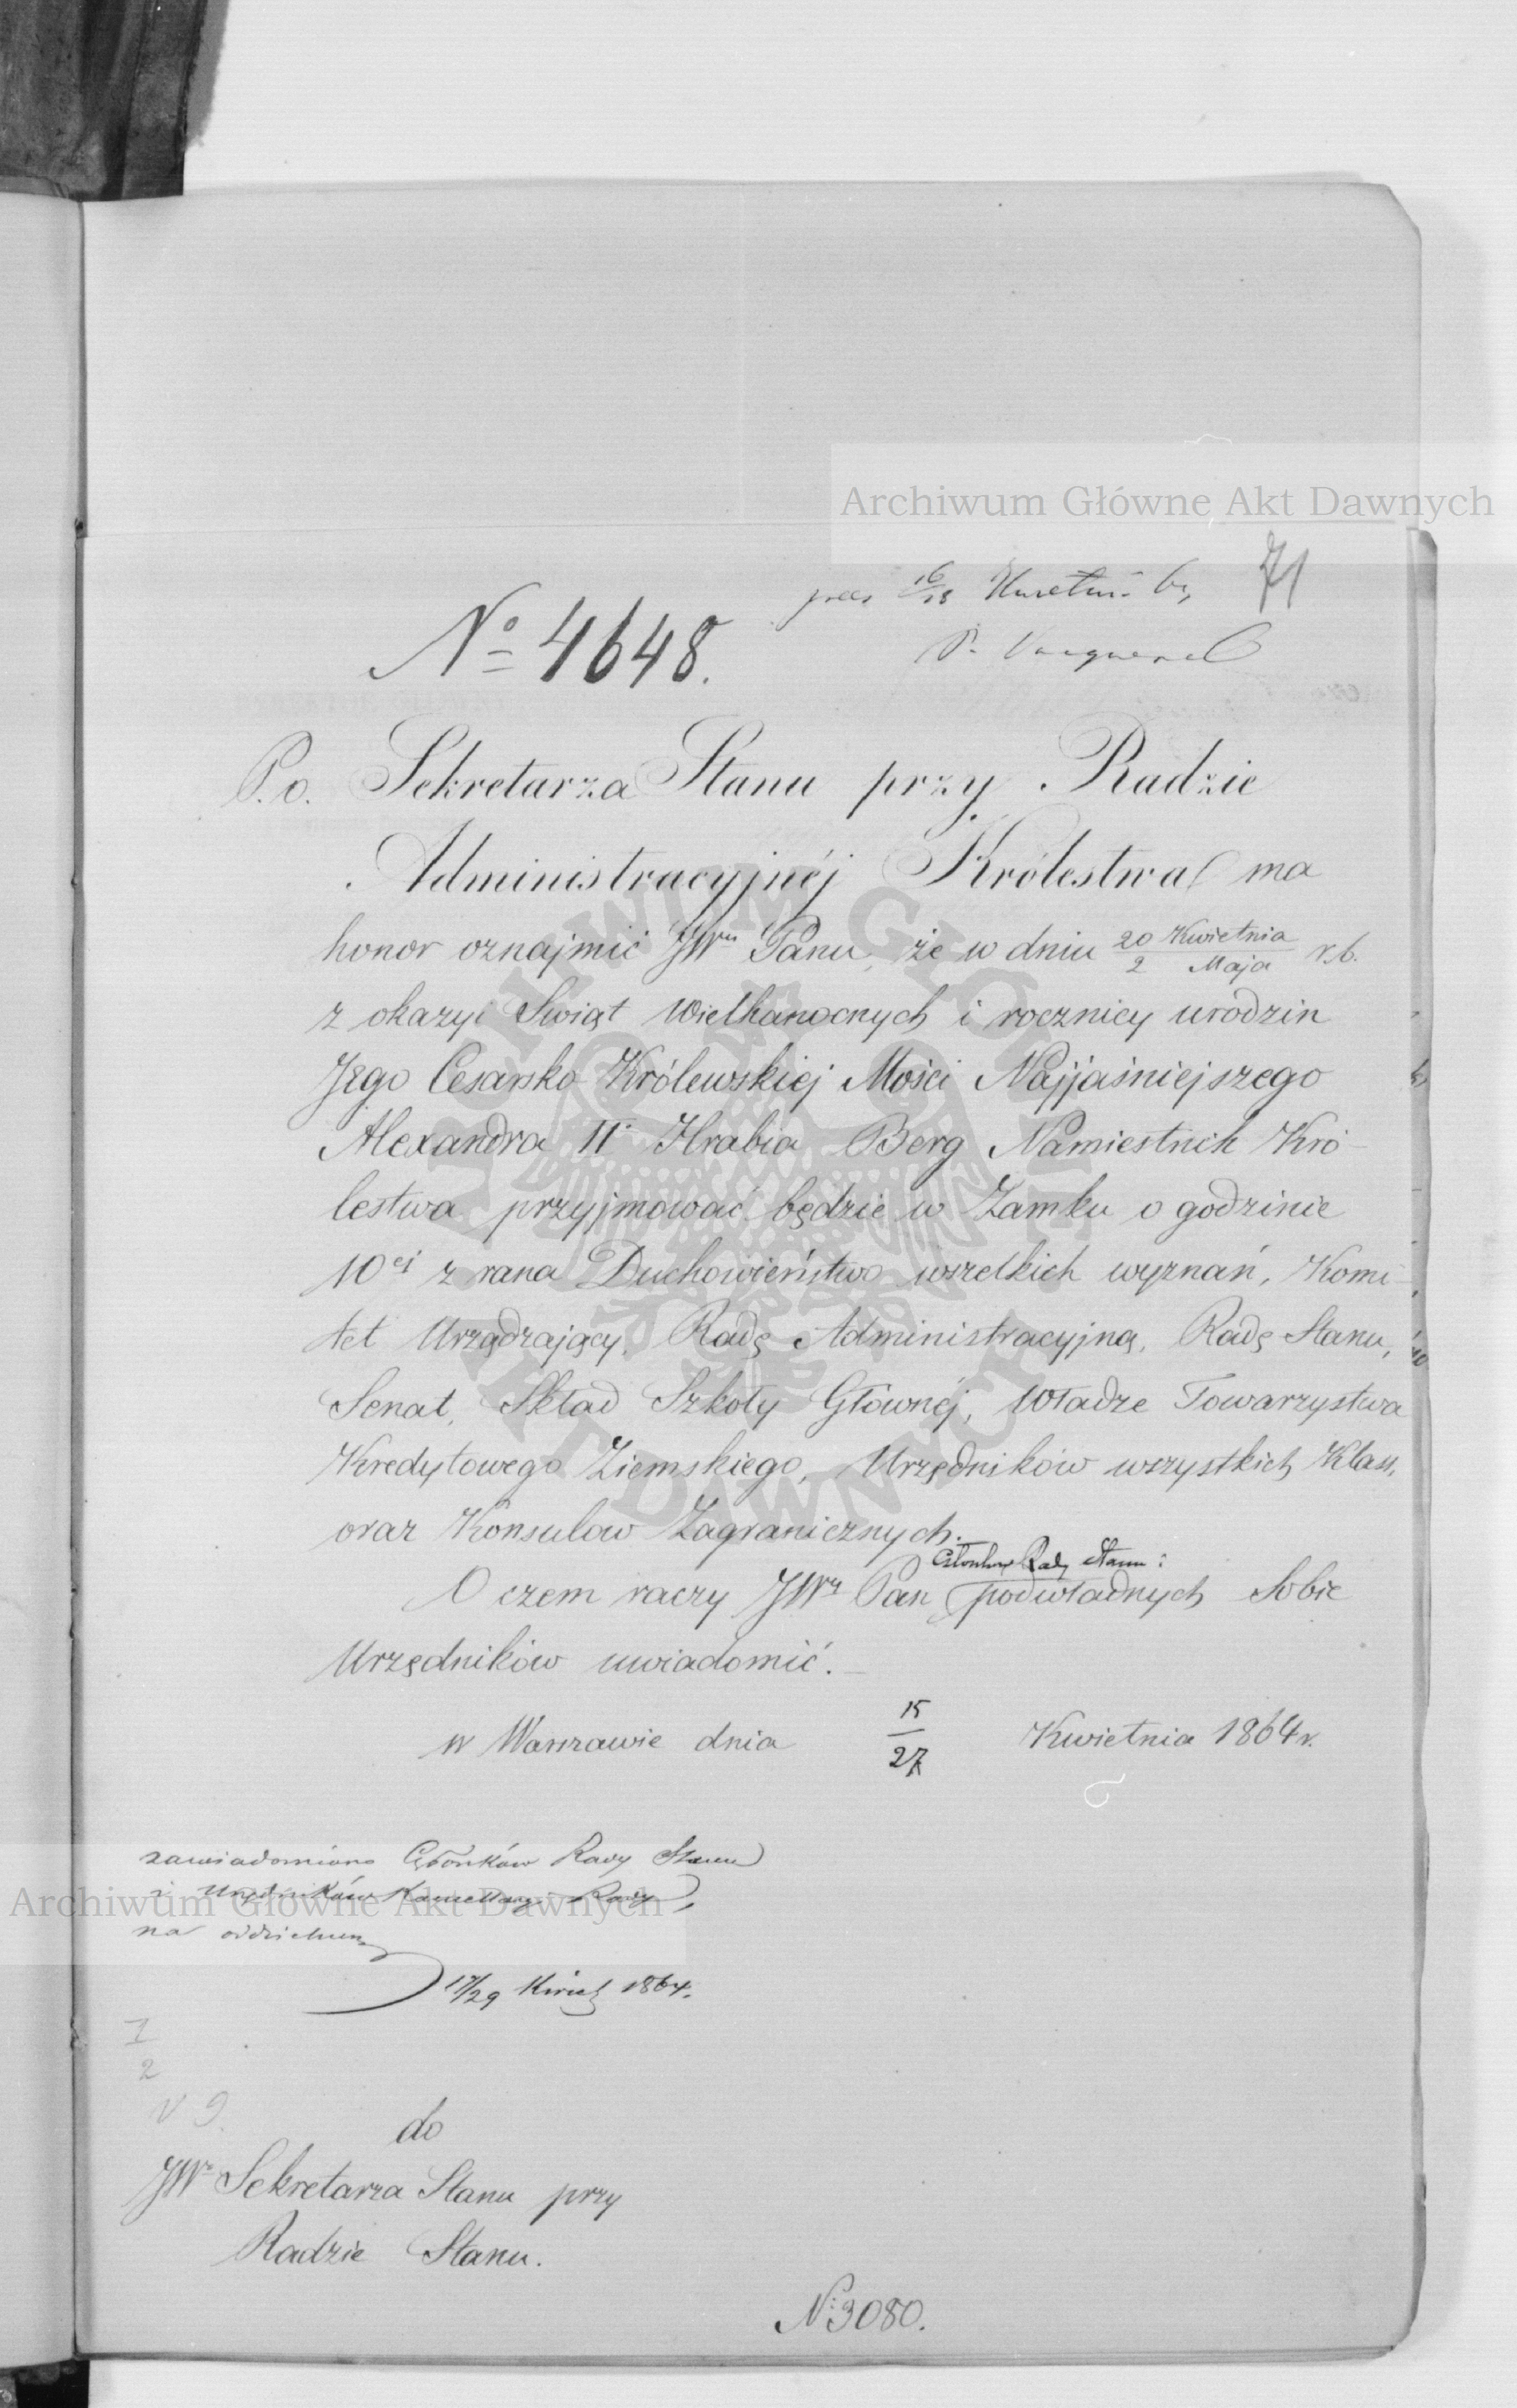 Archiwum Główne Akt Dawnych
71
prez 16/28 Kwietnia
№ 4648.
P.o. Sekretarza Stanu przy Radzie
Administracyjnéj Królestwa ma
honor oznajmić JWmu Panu, że w dniu 20 Kwietnia / 2 Maja r.b.
z okazyi Swiąt Wielkanocnych i rocznicy urodzin
Jego Cesarsko-Królewskiej Mości Najjaśniejszego
Alexandra IIo Hrabia Berg Namiestnik Kró-
lestwa przyjmować będzie w Zamku o godzinie
10ej z rana Duchowieństwo wszelkich wyznań, Komi-
tet Urządzający, Radę Administracyjną, Radę Stanu,
Senat, Skład Szkoły Głównéj, Władze Towarzystwa
Kredytowego Ziemskiego, Urzędników wszystkich Klass,
oraz Konsulow Zagranicznych.
Członków Rady Stanu i
O czem raczy JWy Pan podwładnych Sobie
Urzędników uwiadomić.
w Warszawie dnia 15/27 Kwietnia 1864 r.
zawiadomiono Członków Rady Stanu
i Urzędników Kancellaryi Rady,
na oddzielnym
17/29 Kwiet 1864.
Archiwum Główne Akt Dawnych
I
2
V 9.
do
JWo Sekretarza Stanu przy
Radzie Stanu.
N: 3080.
ARCHIWUM GŁÓWNE AKT DAWNYCH